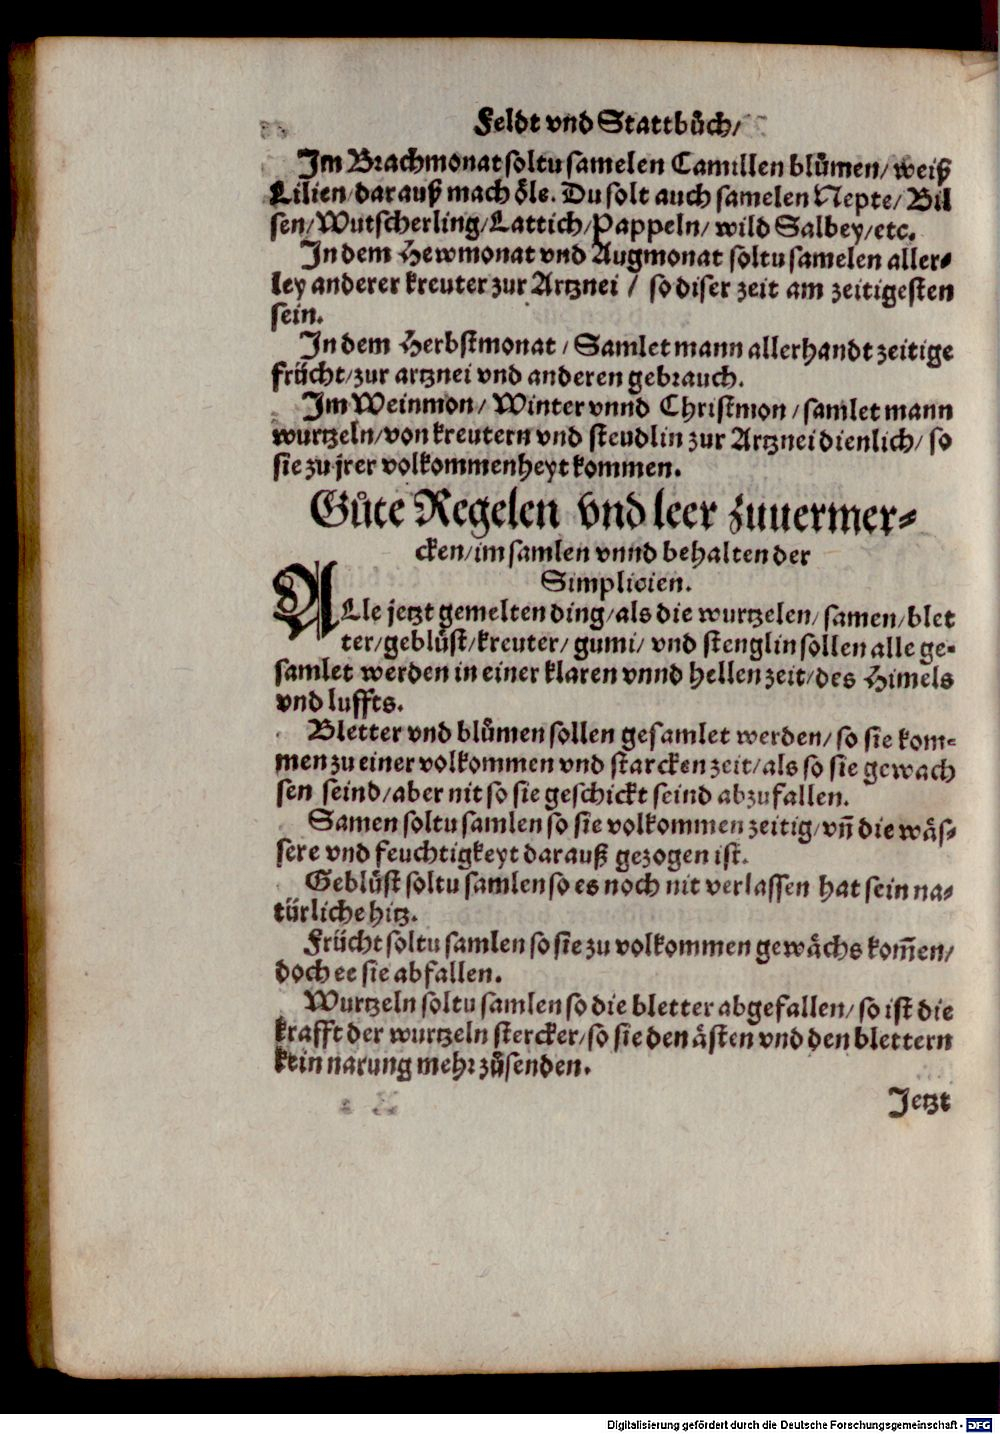 Feldt vnd Stattbuͦch/
Im Brachmonat soltu samelen Camillen bluͦmen/ weiß
Lilien/ darauß mach oͤle. Du solt auch samelen Nepte/ Bil
sen/ Wutscherling/ Lattich/ Pappeln/ wild Salbey/ etc.
In dem Hewmonat vnd Augmonat soltu samelen aller⸗
ley anderer kreuter zur Artznei / so diser zeit am zeitigesten
sein.
In dem Herbstmonat / Samlet mann allerhandt zeitige
fruͤcht/ zur artznei vnd anderen gebrauch.
Im Weinmon/ Winter vnnd Christmon / samlet mann
wurtzeln/ von kreutern vnd steudlin zur Artznei dienlich/ so
sie zu jrer volkommenheyt kommen.
Guͦte Regelen vnd leer zuuermer⸗
cken/ im samlen vnnd behalten der
Simplicien.
ALle jetzt gemelten ding/ als die wurtzelen/ samen/ blet
ter/ gebluͤst/ kreuter/ gumi/ vnd stenglin sollen alle ge⸗
samlet werden in einer klaren vnnd hellen zeit/ des Himels
vnd luffts.
Bletter vnd bluͦmen sollen gesamlet werden/ so sie kom⸗
men zu einer volkommen vnd starcken zeit/ als so sie gewach
sen seind/ aber nit so sie geschickt seind abzufallen.
Samen soltu samlen so sie volkommen zeitig/ vñ die waͤs⸗
sere vnd feuchtigkeyt darauß gezogen ist.
Gebluͤst soltu samlen so es noch nit verlassen hat sein na⸗
tuͤrliche hitz.
Fruͤcht soltu samlen so sie zu volkommen gewaͤchs kom̃en/
doch ee sie abfallen.
Wurtzeln soltu samlen so die bletter abgefallen/ so ist die
krafft der wurtzeln stercker/ so sie den aͤsten vnd den blettern
kein narung mehr zuͦsenden.
Jetzt
Digitalisierung gefördert durch die Deutsche Forschungsgemeinschaft - DFG